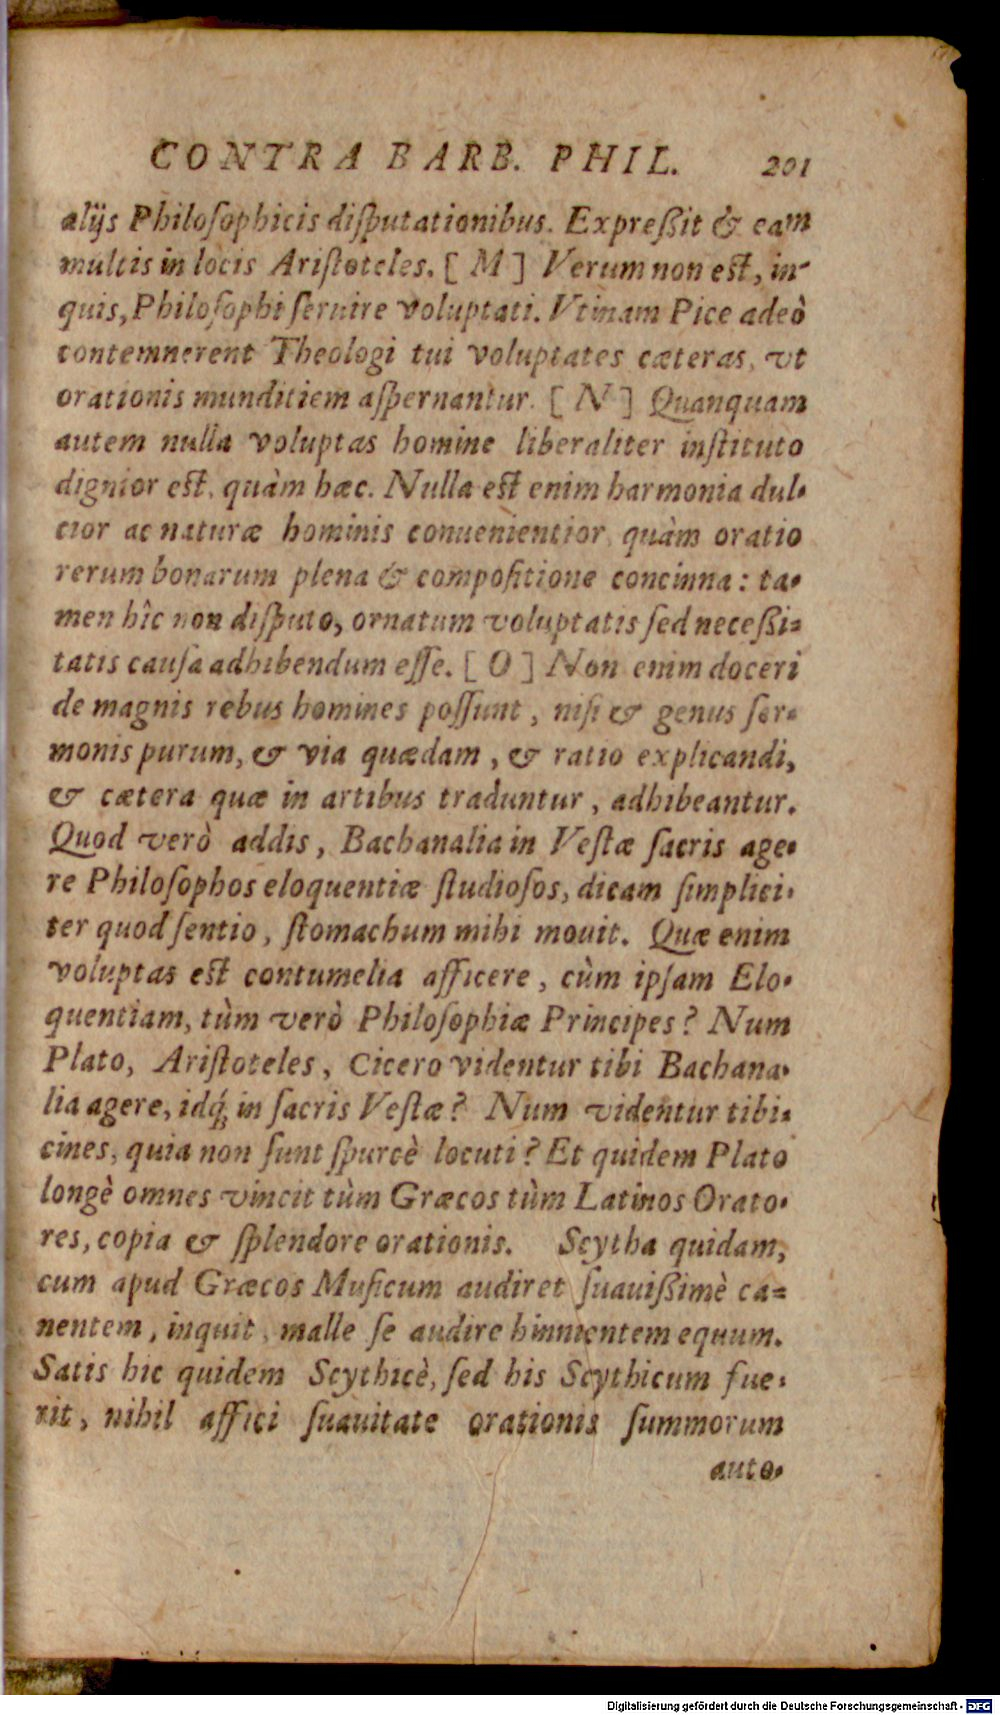 CONTRA BARB. PHIL. 201
alijs Philoſophicis diſputationibus. Expreßit & eam
multis in locis Ariſtoteles. [ M ] Verum non eſt, in-
quis, Philoſophi ſeruire voluptati. Vtinam Pice adeò
contemnerent Theologi tui voluptates cæteras, vt
orationis munditiem aſpernantur. [ N ] Quanquam
autem nulla voluptas homine liberaliter inſtituto
dignior eſt, quàm hæc. Nulla eſt enim harmonia dul-
cior ac naturæ hominis conuenientior, quàm oratio
rerum bonarum plena & compoſitione concinna: ta-
men hîc non diſputo, ornatum voluptatis ſed neceßi-
tatis cauſa adhibendum eſſe. [ O ] Non enim doceri
de magnis rebus homines poſſunt, niſi & genus ſer-
monis purum, & via quædam, & ratio explicandi,
& cætera quæ in artibus traduntur, adhibeantur.
Quod verò addis, Bachanalia in Veſtæ ſacris age-
re Philoſophos eloquentiæ ſtudioſos, dicam ſimplici-
ter quod ſentio, ſtomachum mihi mouit. Quæ enim
voluptas eſt contumelia afficere, cùm ipſam Elo-
quentiam, tùm verò Philoſophiæ Principes? Num
Plato, Ariſtoteles, Cicero videntur tibi Bachana-
lia agere, idq́; in ſacris Veſtæ? Num videntur tibi-
cines, quia non ſunt ſpurcè locuti? Et quidem Plato
longè omnes vincit tùm Græcos tùm Latinos Orato-
res, copia & ſplendore orationis. Scytha quidam,
cum apud Græcos Muſicum audiret ſuauißimè ca-
nentem, inquit, malle ſe audire hinnientem equum.
Satis hic quidem Scythicè, ſed his Scythicum fue-
rit, nihil affici ſuauitate orationis ſummorum
auto-
Digitalisierung gefördert durch die Deutsche Forschungsgemeinschaft - DFG